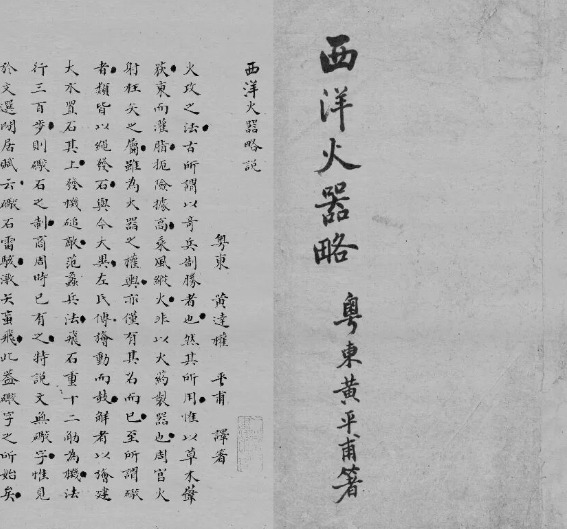 西洋火器略
粵東黃平甫箸
西洋火器略説
粵東 黃達權 平甫 譯著
火攻之法古所謂以奇兵制勝者也然其所用惟以草木葦
荻裹而灌脂扼險據高乘風縱火非以火葯製器也周官火
射枉矢之屬雖為火器之權輿亦僅有其名而已至所謂礮
者類皆以繩發石與今大異左氏傳旝動而鼓解者以旝建
大木置石其上發機磓敵范蠡兵法飛石重十二觔為機法
行三百步則礮石之制商周時已有之特説文無礮字惟見
於文選閒居賦云礮石雷駭激矢䖟飛此蓋礮字之所始矣